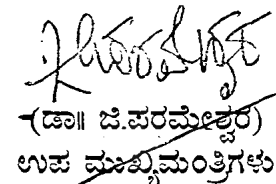 (ಡಾ|| ಜಿ.ಪರಮೇಶ್ವರ)
ಉಪ ಮುಖ್ಯಮಂತ್ರಿಗಳು